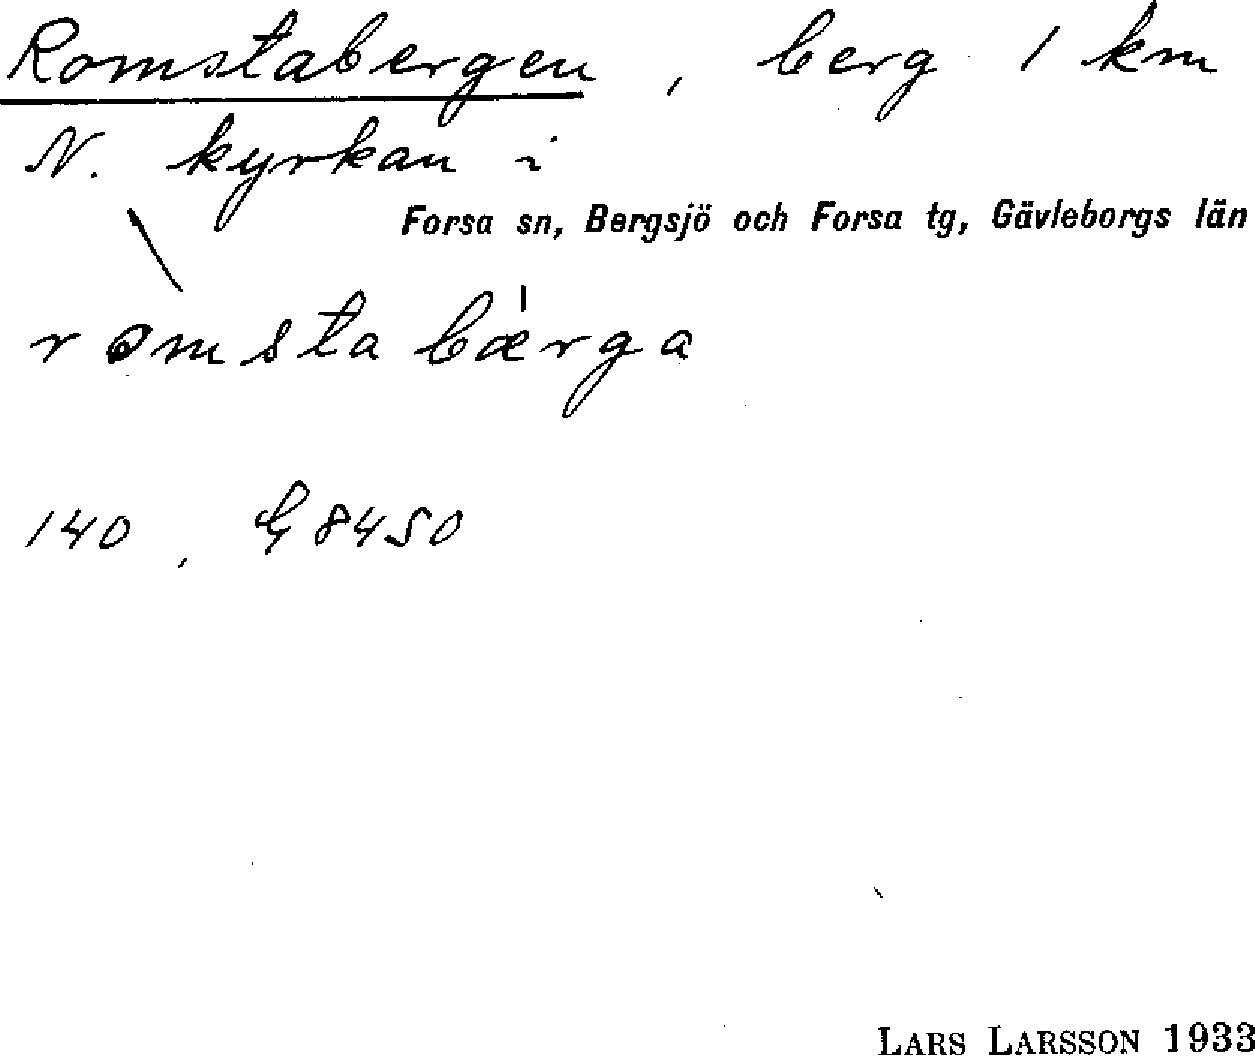 Romstabergen, berg 1 km
N. kyrkan i
Forsa sn, Bergsjö och Forsa tg, Gävleborgs län
ròmstabǽrga
140, G 8450
LARS LARSSON 1933